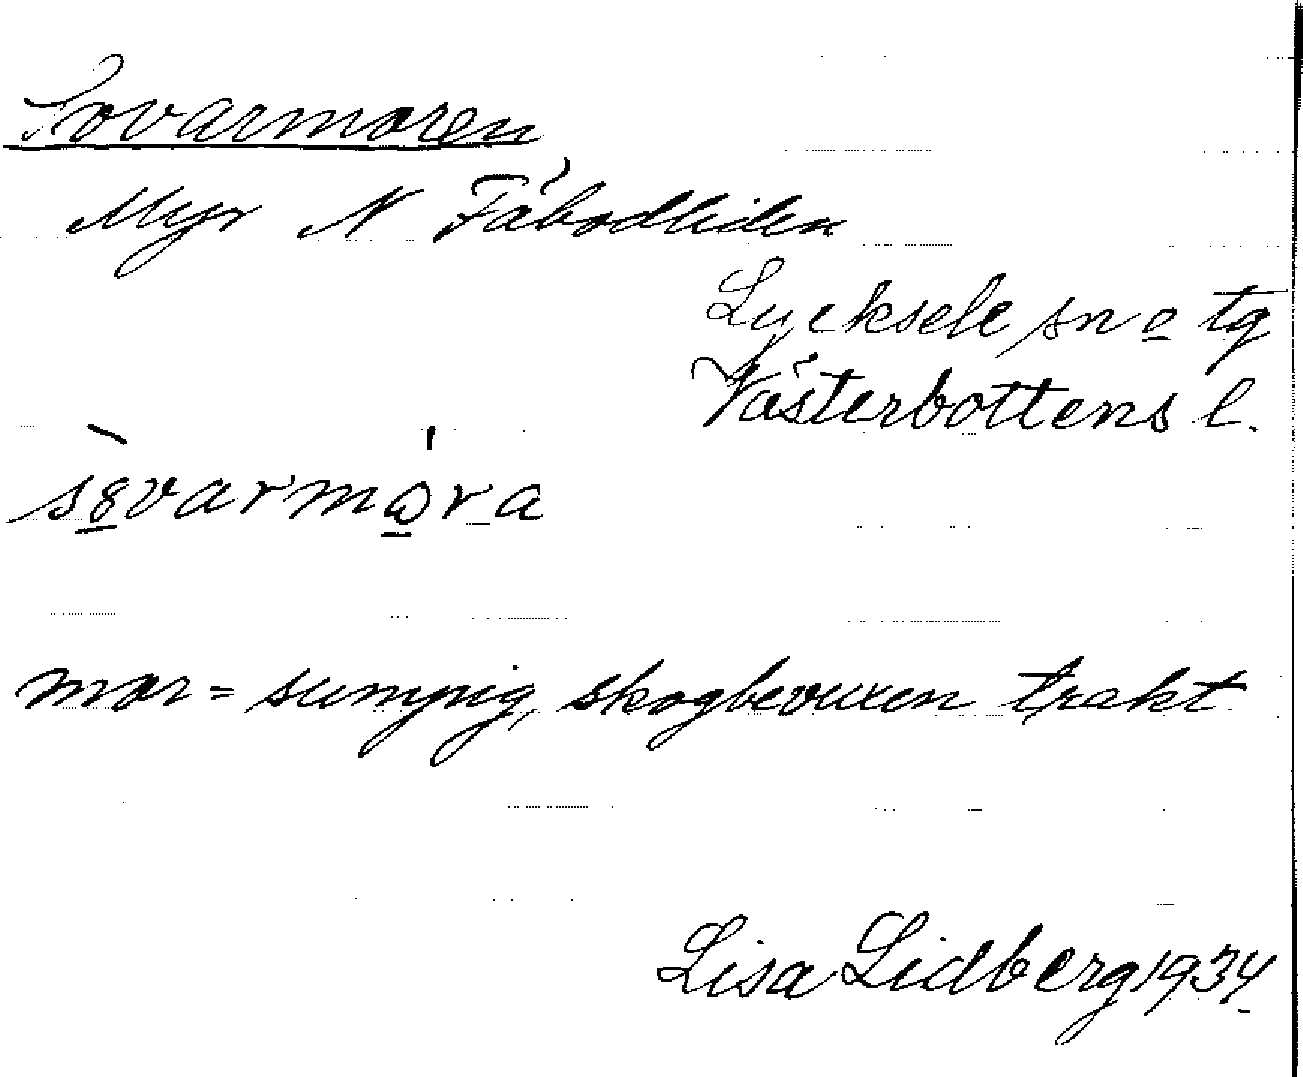 Sovarmoren
Myr N Fäbodliden
Lycksele sn o tg
Västerbottens l.
sovarmora
mor = sumpig, skogbevuxen trakt
Lisa Lidberg 1934